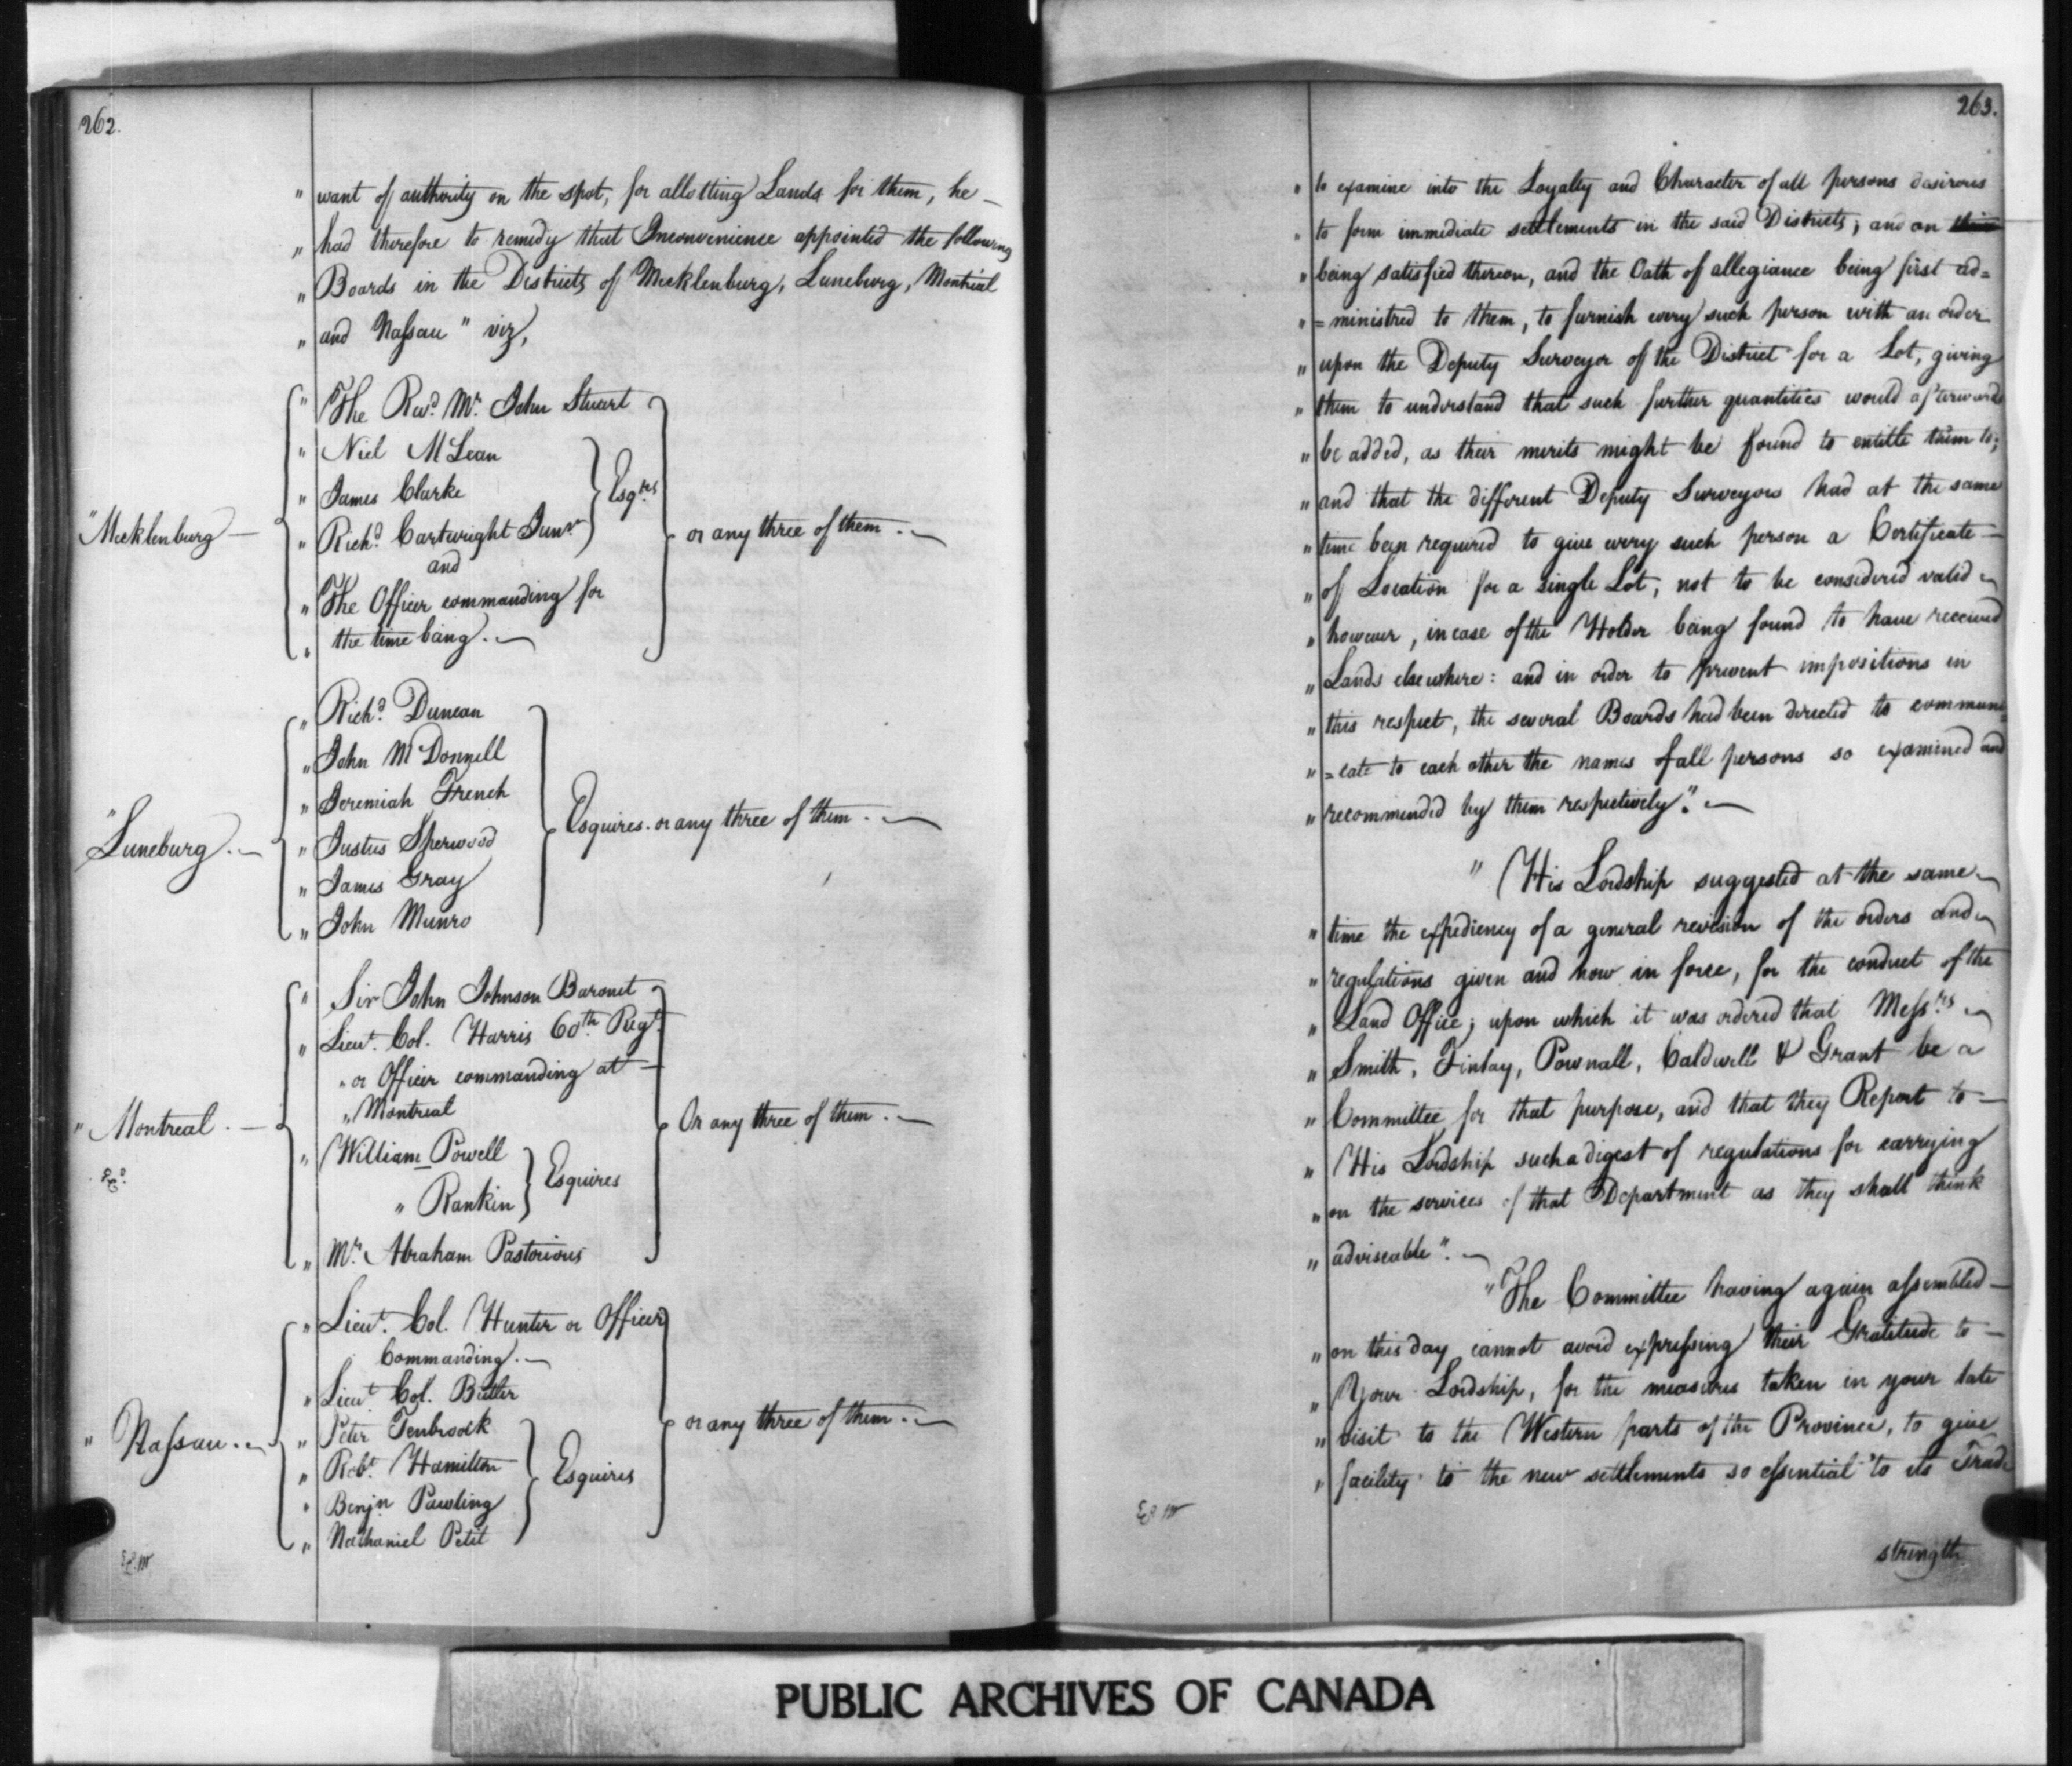 262.
" want of authority on the spot, for allotting Lands for them, he —
" had therefore to remedy that Inconvenience appointed the following
" Boards in the Districts of Mecklenburg, Luneburg, Montreal
" and Nassau " viz,
" Mecklenburg —
" The Revd. Mr. John Stuart
" Niel McLean
" James Clarke
" Richd. Cartwright Junr.
Esqrs
and
" The Officer commanding for
" the time being. —
or any three of them. —
" Luneburg. —
" Richd. Duncan
" John McDonnell
" Jeremiah French
" Justus Sherwood
" James Gray
" John Munro
Esquires. or any three of them. —
" Montreal. —
" Sir John Johnson Baronet
" Lieut. Col. Harris 60th. Regt.
" or Officer commanding at —
" Montreal
" William Powell
" Rankin
Esquires
" Mr. Abraham Pastorious
Or any three of them. —
" Nassau. —
" Lieut. Col. Hunter or Officer
Commanding. —
" Lieut. Col. Butler
" Peter Tenbroock
" Robt. Hamilton
" Benjn Pawling
" Nathaniel Petit
Esquires
or any three of them. —
263.
" to examine into the Loyalty and Character of all persons desirous
" to form immediate settlements in the said Districts, and on
" being satisfied thereon, and the Oath of allegiance being first ad=
" =ministred to them, to furnish every such person with an order
" upon the Deputy Surveyor of the District for a Lot, giving
" them to understand that such further quantities would afterwards
" be added, as their merits might be found to entitle them to;
" and that the different Deputy Surveyors had at the same
" time been required to give every such person a Certificate —
" of Location for a single Lot, not to be considered valid
" however, in case of the Holder being found to have received
" Lands elsewhere: and in order to prevent impositions in
" this respect, the several Boards had been directed to communi=
" =cate to each other the names of all persons so examined and
" recommended by them respectively". —
" His Lordship suggested at the same
" time the expediency of a general revision of the orders and
" regulations given and now in force, for the conduct of the
" Land Office; upon which it was ordered that Messrs
" Smith, Finlay, Pownall, Caldwell & Grant be a
" Committee for that purpose, and that they Report to —
" His Lordship such a digest of regulations for carrying
" on the services of that Department as they shall think
" adviseable". —
" The Committee having again assembled —
" on this day cannot avoid expressing their Gratitude to —
" Your Lordship, for the measures taken in your late
" visit to the Western parts of the Province, to give
" facility to the new settlements so essential to its Trade
strength
PUBLIC ARCHIVES OF CANADA